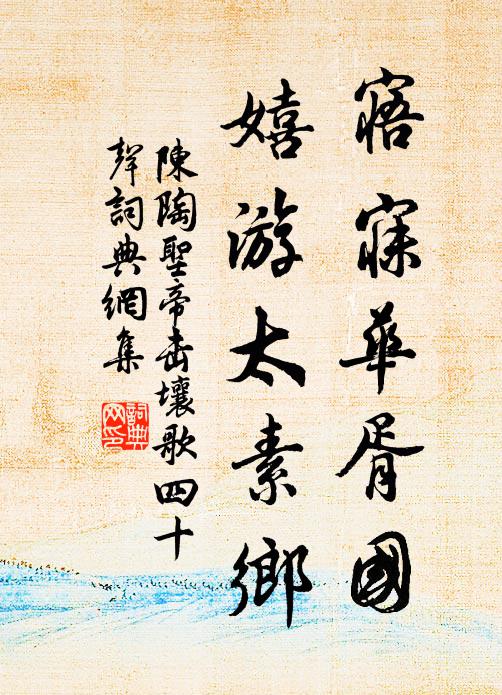 寤寐華胥國
嬉游太素鄉
陳陶聖帝击壤歌四十
聲詞典網集
詞典
网印